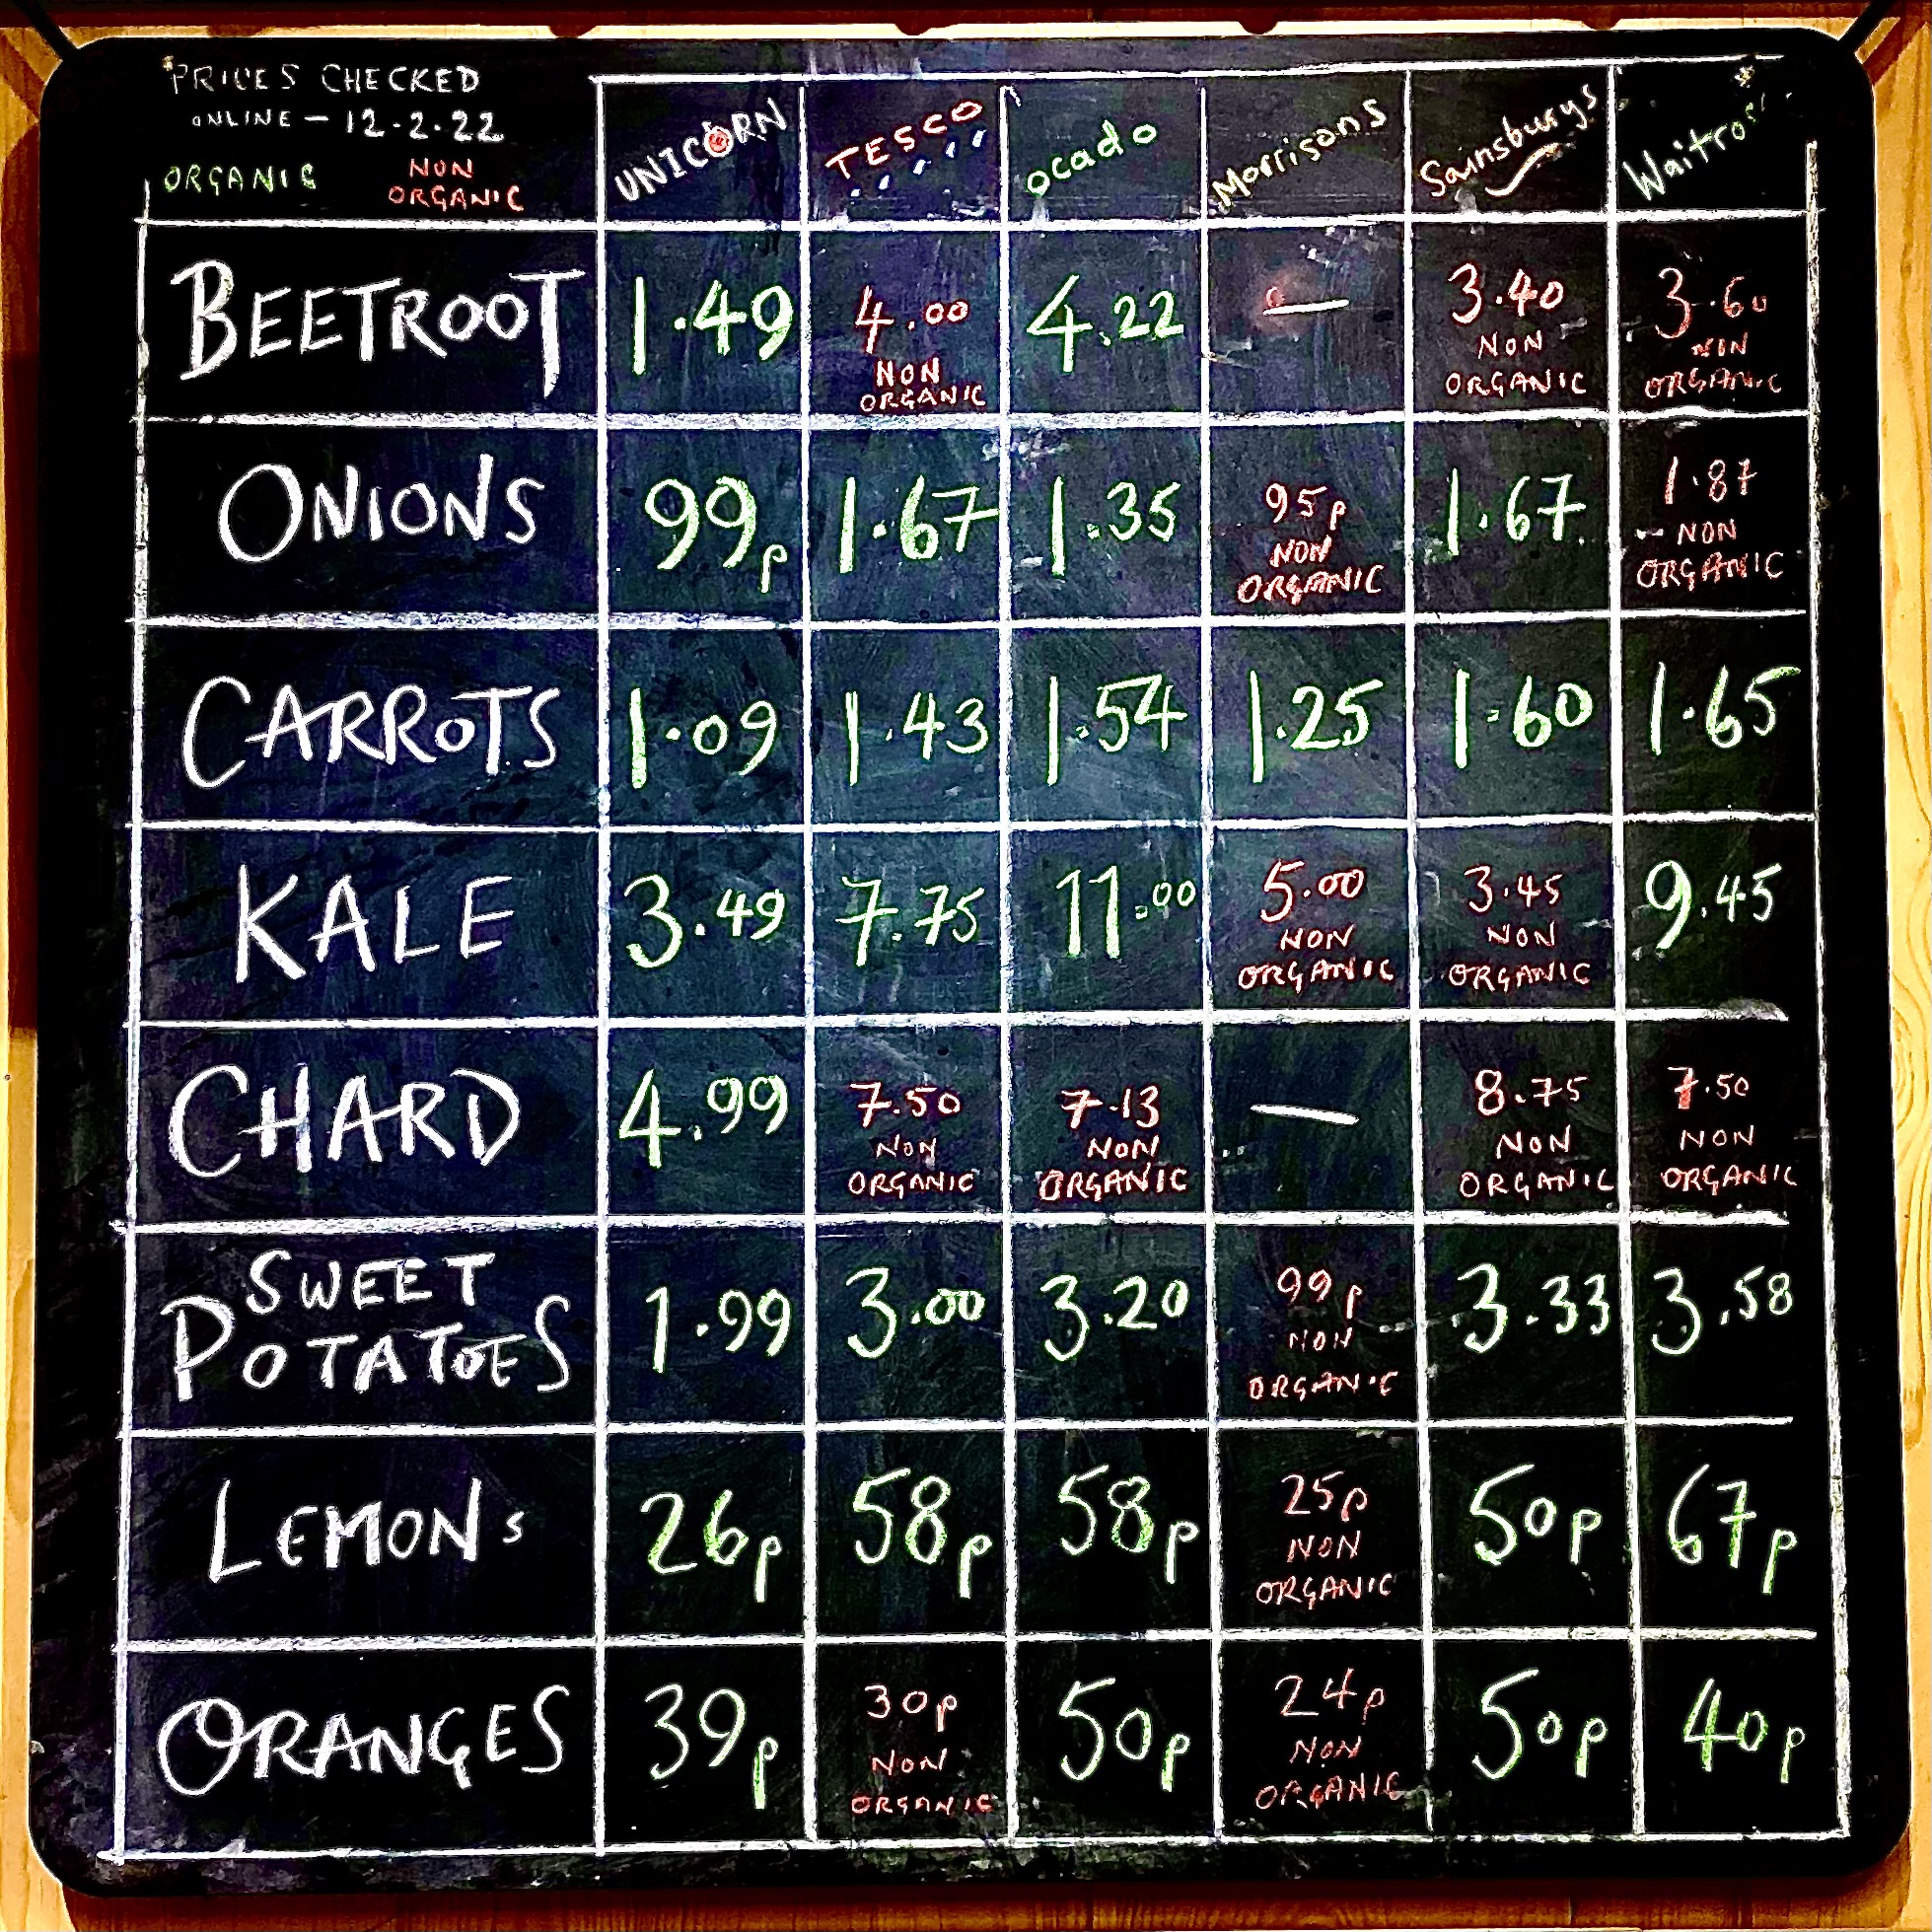 PRICES CHECKED
ONLINE — 12.2.22
ORGANIC NON ORGANIC
UNICORN TESCO ocado Morrisons Sainsburys
BEETROOT 1.49 4.00 NON ORGANIC 4.22 — 3.40 NON ORGANIC 3.60 NON ORGANIC
ONIONS 99p 1.67 1.35 95p NON ORGANIC 1.67 1.87 NON ORGANIC
CARROTS 1.09 1.43 1.54 1.25 1.60 1.65
KALE 3.49 7.75 11.00 5.00 NON ORGANIC 3.45 NON ORGANIC 9.45
CHARD 4.99 7.50 NON ORGANIC 7.13 NON ORGANIC — 8.75 NON ORGANIC 7.50 NON ORGANIC
SWEET POTATOES 1.99 3.00 3.20 99p NON ORGANIC 3.33 3.58
LEMONS 26p 58p 58p 25p NON ORGANIC 50p 67p
ORANGES 39p 30p NON ORGANIC 50p 24p NON ORGANIC 50p 40p